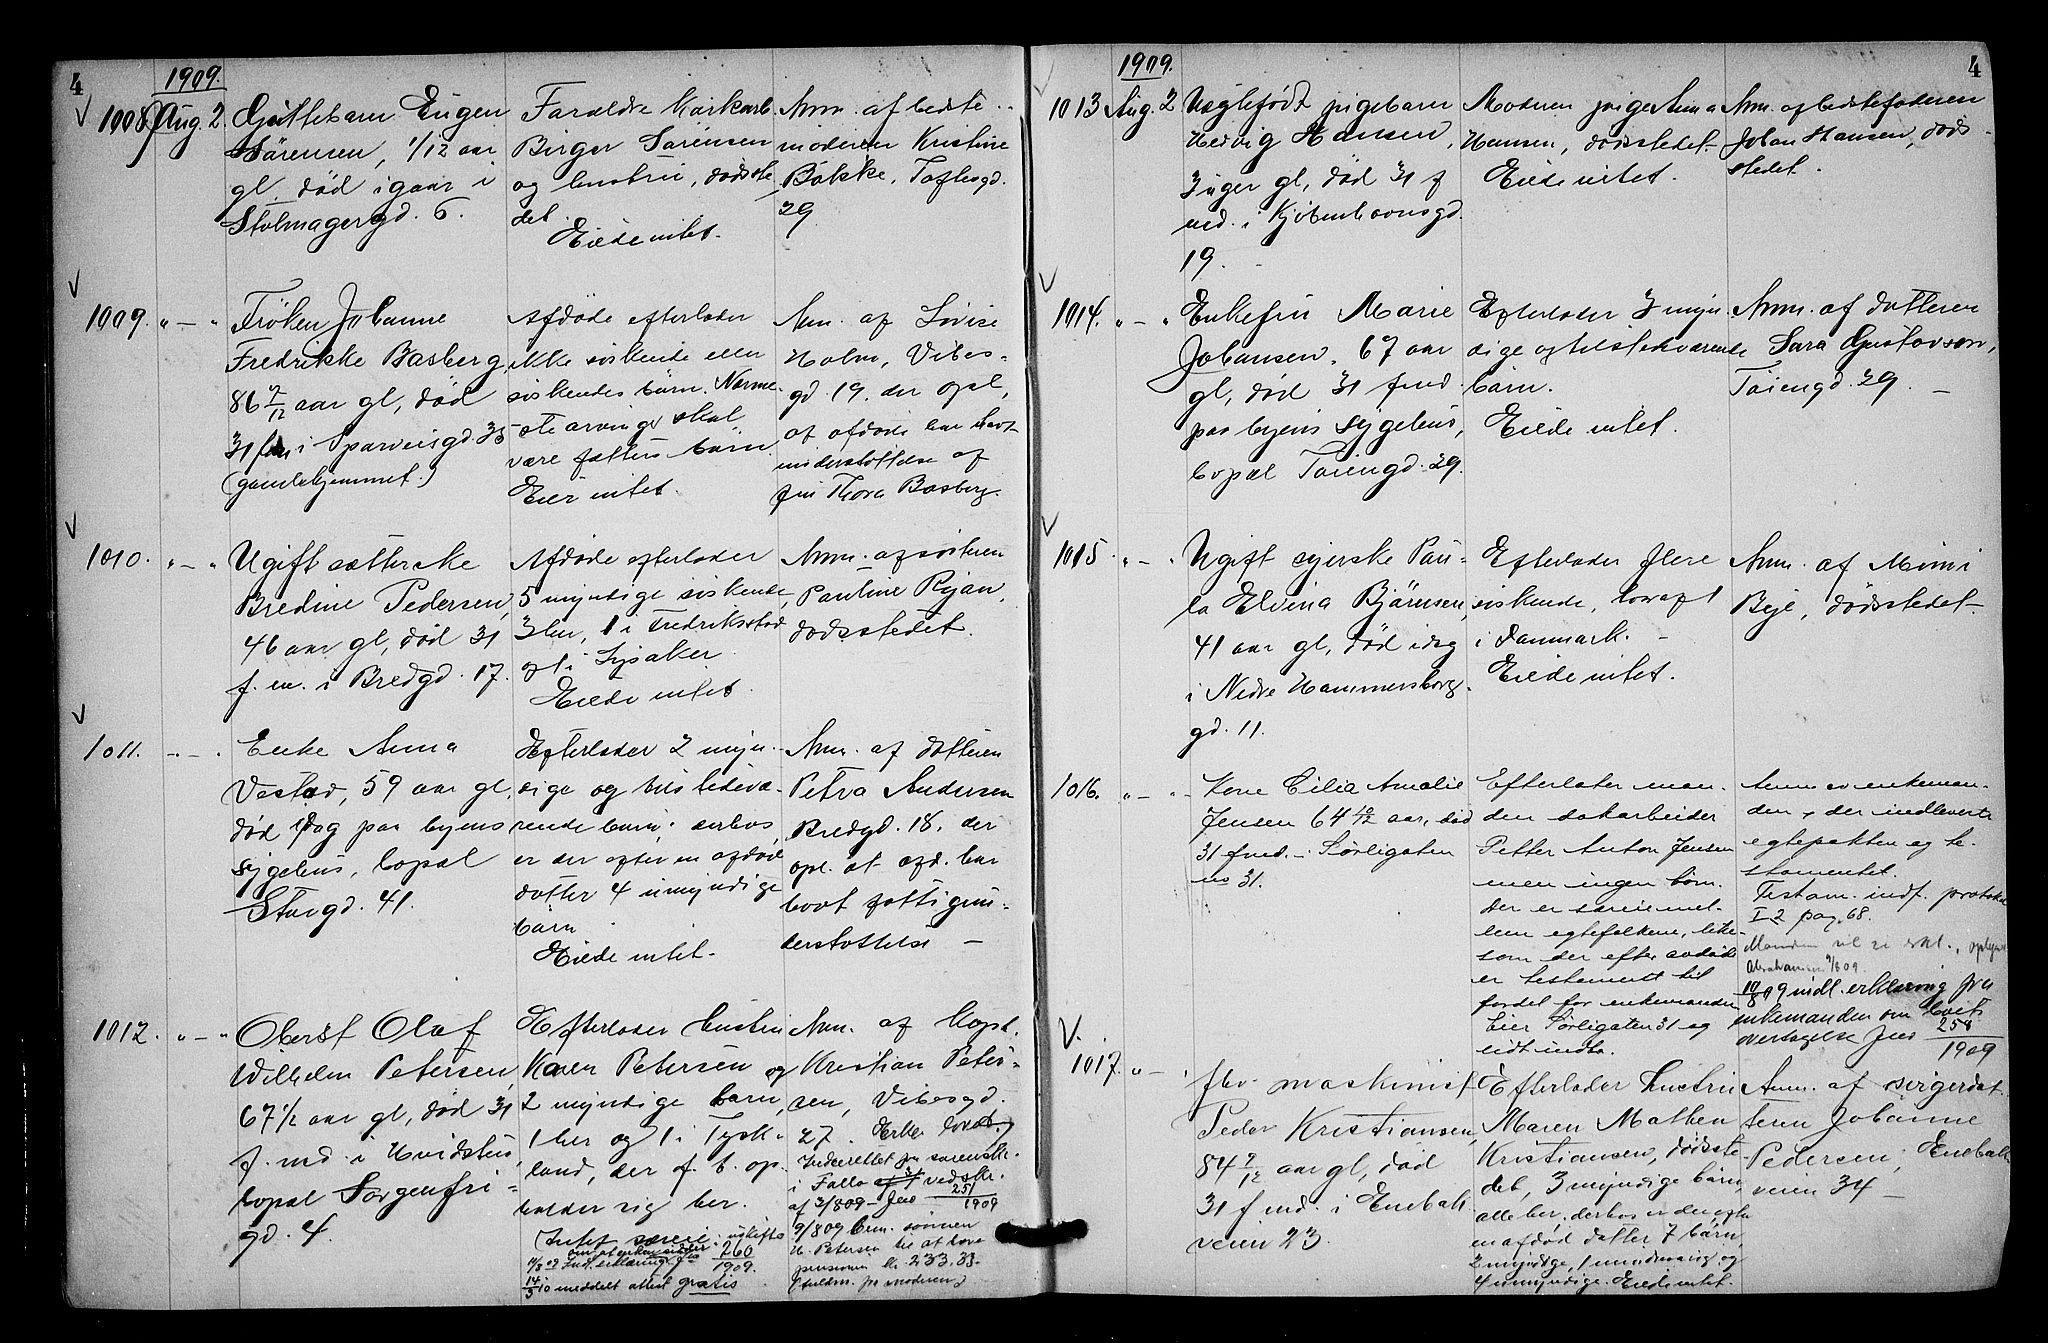 4
1909.
1008. Aug. 2.
Guttebarn Eugen
Sørensen, 1/12 aar
gl. død igaar i
Stolmagergd. 6.
Foreldre
Birger Sørensen
og hustru, dødsste
det.
Eiede intet.
Anm. af bedste
moderen Kristine
Bakke, Toftesgd.
29
1009. " — "
Frøken Johanne
Fredrikke Basberg,
86 7/12 aar gl, død
31 f.m. i Sparveisgd. 35
(gamlehjemmet.)
Afdøde efterlader
ikke søskende eller
søskendes børn. Nærme-
ste arvinger skal
være fætters børn.
Eier intet.
Anm. af Lovise
Holm, Vibes-
gd 19, der opl,
at afdøde har havt
understøttelse af
fru Thora Basberg.
1010. " — "
Ugift sætterske
Bredine Pedersen,
46 aar gl, død 31
f. m. i Bredgd. 17.
Afdøde efterlader
5 myndige søskende,
3 her, 1 i Fredriksstad
og 1 i Lysaker.
Eiede intet.
Anm. af søsteren
Pauline Ryan,
dødsstedet.
1011. " — "
Enke Anna
Vestad, 59 aar gl,
død idag paa byens
sygehus, bopæl
Storgd. 41.
Efterlader 2 myn-
dige og tilstedevæ-
rende børn. derhos
er der efter en afdød
datter 4 umyndige
børn.
Eiede intet.
Anm. af datteren
Petra Andersen
Bredgd. 18, der
opl. at afd. har
havt fattigun-
derstøttelse —
1012. " — "
Oberst Olaf
Wilhelm Petersen,
67 1/2 aar gl, død 31
f. md. i Hvidsten,
bopæl Sorgenfri-
gd. 4.
Efterlader hustru
Karen Petersen og
2 myndige børn,
1 her og 1 i Tysk-
land, der f. t. op-
holder sig her.
Intet særeie
260
1909.
14/5 10 meddelt attest gratis
Anm. af Kapt.
Kristian Peter-
sen, Vibesgd.
27.
Indberettet fra sorenskr.
i Follo ved skr.
af 3/8 09 Jno 251
1909
9/8 09 sønnen
K. Petersen
pensionen kr. 233,33.
4
1909.
1013 Aug. 2
Uægtefødt pigebarn
Hedvig Hansen,
3 uger gl, død 31 f
md. i Kjøbenhavnsgd.
19.
Moderen pige Anna
Hansen, dødsstedet
Eiede intet.
Anm. af bedstefaderen
Johan Hansen, døds-
stedet.
1014. " — "
Enkefru Marie
Johansen. 67 aar
gl, død 31 f md.
paa byens sygehus,
bopæl Tøiengd. 29.
Efterlader 3 myn-
dige og tilstedeværende
børn.
Eiede intet.
Anm. af datteren
Sara Gustavson,
Tøiengd. 29. —
1015. " — "
Ugift syerske Pau-
la Elvina Bjørnsen,
41 aar gl, død idag
i Nedre Hammersborg-
gd. 11.
Efterlader flere
søskende, hvoraf 1
i Danmark. —
Eiede intet.
Anm. af Mimi
Beje, dødsstedet
1016. " — "
Kone Cilie Amalie
Jensen 64 4/12 aar, død
31 f md. i Sørligaten
no 31.
Efterlater man-
den sakarbeider
Petter Anton Jensen
men ingen børn.
Der er særeie mel-
lem egtefolkene, like-
som der efter avdøde
er testament til
fordel for enkemanden
Eier Sørligaten 31 og
lidt indbo.
Anm. av enkeman-
den, der indleverte
egtepakten og te-
stamentet.
Testam. indf. protokol
I 2 pag. 68.
Abrahamsen 9/8 09.
10/8 09 indl. erklæring fra
enkemanden om bovets
overtagelse Jno 258
1909
1017. " — "
fhv. maskinist
Peder Kristiansen,
84 9/12 aar gl, død
31 f md. i Enebak-
veien 23.
Efterlader hustru
Maren Mathea
Kristiansen, dødsste-
det, 3 myndige børn,
alle her, derhos er der efter
en afdød datter 7 børn,
2 myndige, 1 mindreaarig og
4 umyndige. Eiede intet.
Anm. af svigerdat-
teren Johanne
Pedersen, Enebak-
veien 34 —